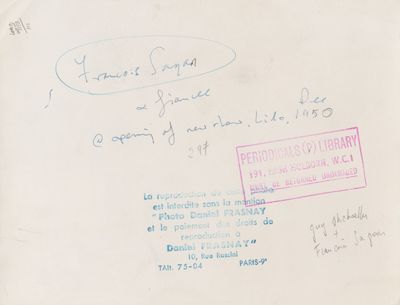 Francois Sagan
& fiancée
@ opening of new show, Lido, Dec 1950
297
PERIODICALS (P) LIBRARY
191, HIGH HOLBORN, W.C.1
MUST BE RETURNED UNDAMAGED
La reproduction de cette photo
est interdite sans la mention
"Photo Daniel FRASNAY
et le paiement des droits de
reproduction à
Daniel FRASNAY"
10, Rue Rossini
TAIt. 75-04 PARIS-9e
Guy
+
Francois Sagan